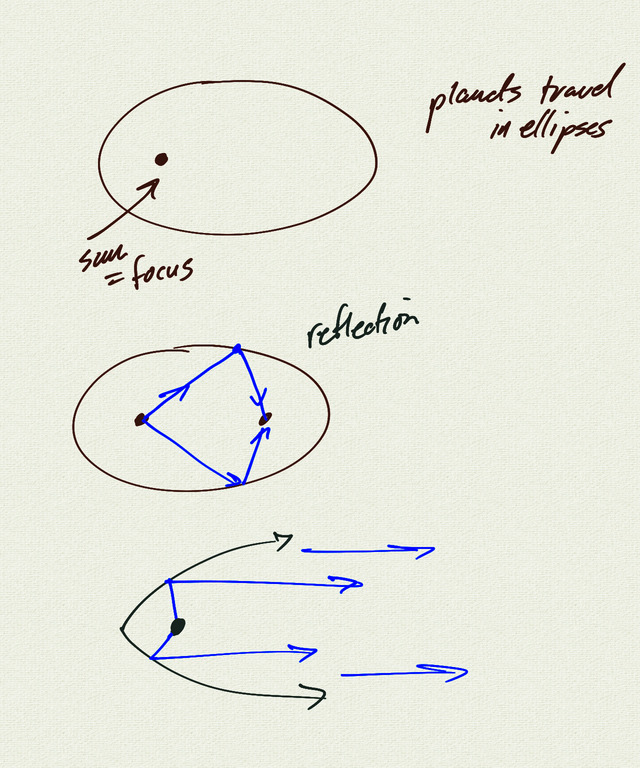 planets travel
in ellipses
sun
= focus
reflection